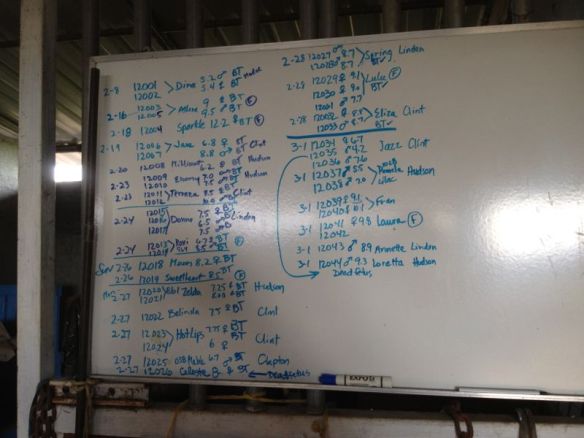 2-8 12001 > Dina 5.2 ♂ BT
12002 5.4 BT
2-16 12003 > 9 ♀ BT
12005 9.5 ♂ BT
2-18 12004 Sparkle 12.2 BT
2-19 12006 > Java 6.8 ♀ BT Clint
12007 8.8 BT
2-20 12008 Millicent 6.2 ♀ BT Hudson
2-23 12009 Ebony 7.0 BT Hudson
12010 7.5 BT
2-23 12011 > 8.5 BT Clint
12012
2-24 12015 7.5 ♀ BT
12016 > Donna 6.5 Linden
12017 7.5
2-24 12013 > Roxi 6.7 BT
2-26 12018 8.2 ♀ BT
2-26 12019 Sweetheart 8.5 BT
2-27 12020 > Zelda 7.25 BT Hudson
12021 BT
2-27 12022 Belinda 7.5 BT Clint
2-27 12023 > Hotlips 7.75 ♀ BT
12024 6 ♀ Clint
2-27 12025 6.7 BT Clapton
2-27 12026 Celeste 8 BT ← Dead fetus
2-28 12027 8.7 > Spring Linden
12028 8.7 BT✓
2-28 12029 ♀ 9.1 > Lulu (F)
12030 9.0 BT✓
12031 9.7
2-28 12032 8.5 > Eliza Clint
12033 ♂ 8.7 BT✓
3-1 12034 6.7 Jazz Clint
12035 ♂ 4.2
12036 ♂ 7.6
3-1 12037 ♂ 5.5 > Pamela Hudson
12038 ♂ 7.0 Lilac
3-1 12039 ♀ 9.1 > Fran
12040 8.1
3-1 12041 ♂ 9.8 Laura (F)
12042
3-1 12043 ♂ 8.9 Annette Linden
3-1 12044 ♂ 9.3 Loretta Hudson
Dead fetus
EXPO